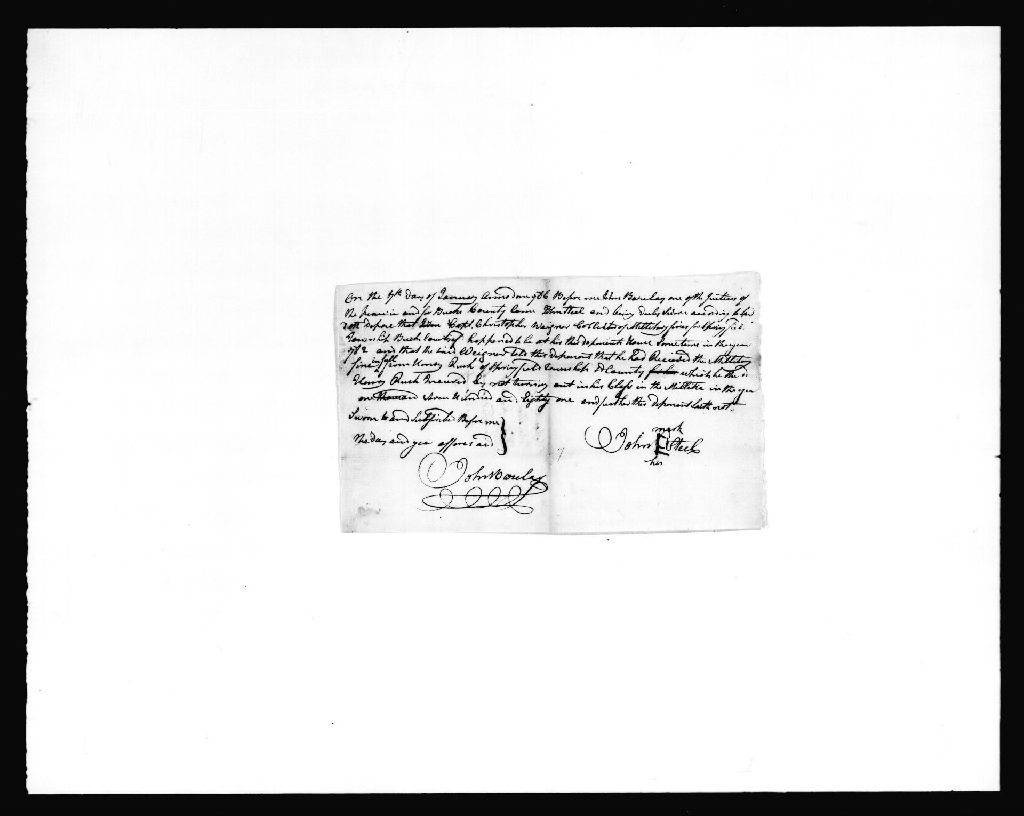 On the 17th day of January Anno dom 1786 Before me John Barclay one of the Justices of
the Peace in and for Bucks County Came John Steel and being duly sworn according to law
doth depose that when Capt. Christopher Waigner Collector of Military fines for Springfield
Township Bucks County happened to be at his this deponents House Sometime in the year
1782 and that the said Weigner told this deponent that he had Received the Military
fine in full from Henry Rush of Springfield township & County which he the sd
Henry Rush Incurred by not turning out in his Class in the Militia in the year
one thousand seven hundred and Eighty one and further this deponent saith not.
Sworn to and Subscribed Before me
the day and year afforesaid
John Barclay
mark
John Steel
his